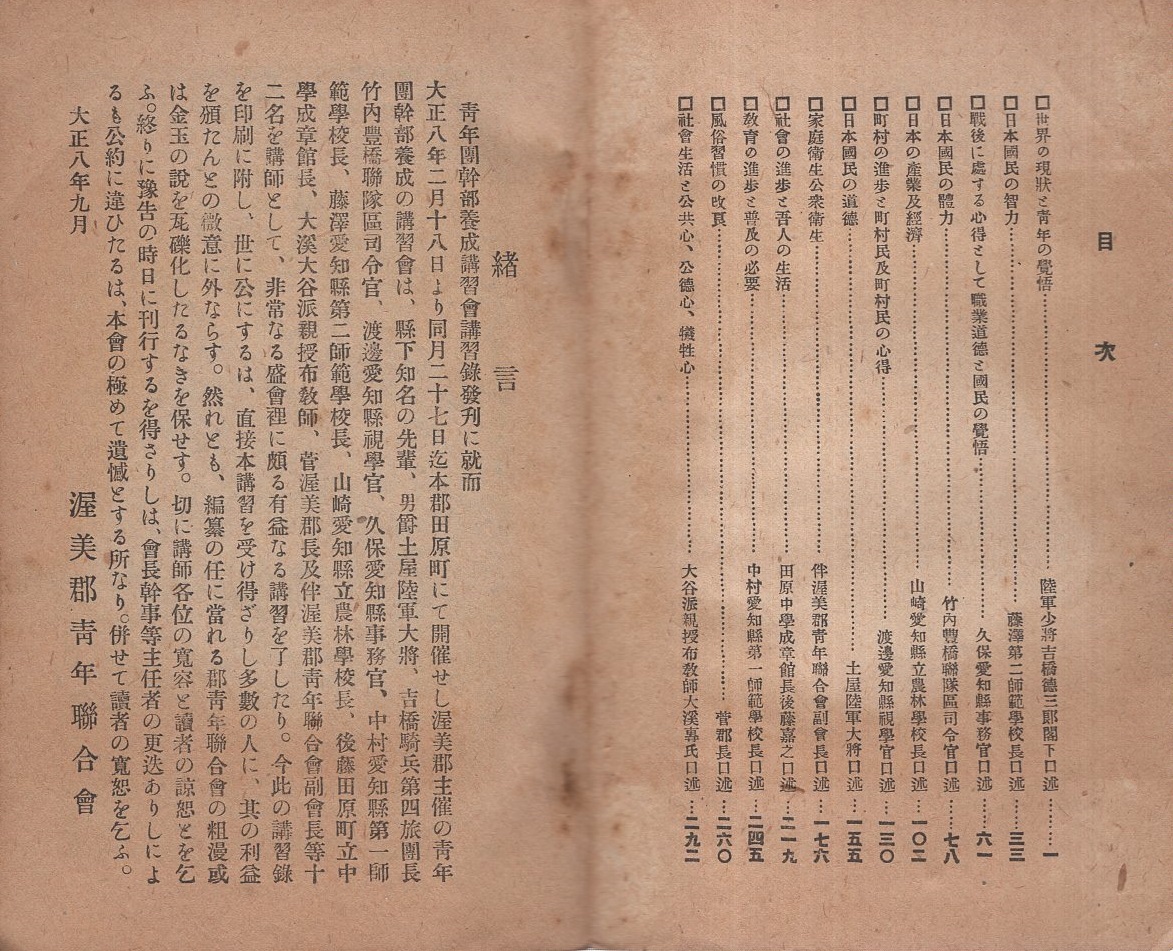 目次
□世界の現狀と青年の覺悟…………陸軍少將吉橋德三郎閣下口述……一
□日本國民の智力…………藤澤第二師範學校長口述…三三
□戰後に處する心得として職業道德と國民の覺悟…………久保愛知縣事務官口述…六一
□日本國民の體力…………竹內豐橋聯隊區司令官口述……七八
□日本の產業及經濟…………山崎愛知縣立農林學校長口述…一〇二
□町村の進步と町村民及町村民の心得…………渡邊愛知縣視學官口述…一三〇
□日本國民の道德…………土屋陸軍大將口述…一五五
□家庭衛生公衆衛生…………伴渥美郡青年聯合會副會長口述…一七六
□社會の進步と吾人の生活…………田原中學成章館長後藤嘉之口述…二一九
□敎育の進步と普及の必要…………中村愛知縣第一師範學校長口述…二四五
□風俗習慣の改良…………菅郡長口述…二六〇
□社會生活と公共心、公德心、犧牲心…………大谷派親授布敎師大溪專氏口述…二九二
緖言
青年團幹部養成講習會講習錄發刋に就而
大正八年二月十八日より同月二十七日迄本郡田原町にて開催せし渥美郡主催の靑年
團幹部養成の講習會は、縣下知名の先輩、男爵土屋陸軍大將、吉橋騎兵第四旅團長
竹內豐橋聯隊區司令官、渡邊愛知縣視學官、久保愛知縣事務官、中村愛知縣第一師
範學校長、藤澤愛知縣第二師範學校長、山崎愛知縣立農林學校長、後藤田原町立中
學成章館長、大溪大谷派親授布敎師、菅渥美郡長及伴渥美郡靑年聯合會副會長等十
二名を講師として、非常なる盛會裡に頗る有益なる講習を了したり。今此の講習錄
を印刷に附し、世に公にするは、直接本講習を受け得ざりし多數の人に、其の利益
を頒たんとの微意に外ならす。然れとも、編纂の任に當れる郡靑年聯合會の粗漫或
は金玉の說を瓦礫化したるなきを保せす。切に講師各位の寬容と讀者の諒恕とを乞
ふ。終りに豫吿の時日に刊行するを得さりしは、會長幹事等主任者の更迭ありしによ
るも公約に違ひたるは、本會の極めて遺憾とする所なり。併せて讀者の寬恕を乞ふ。
大正八年九月
渥美郡靑年聯合會